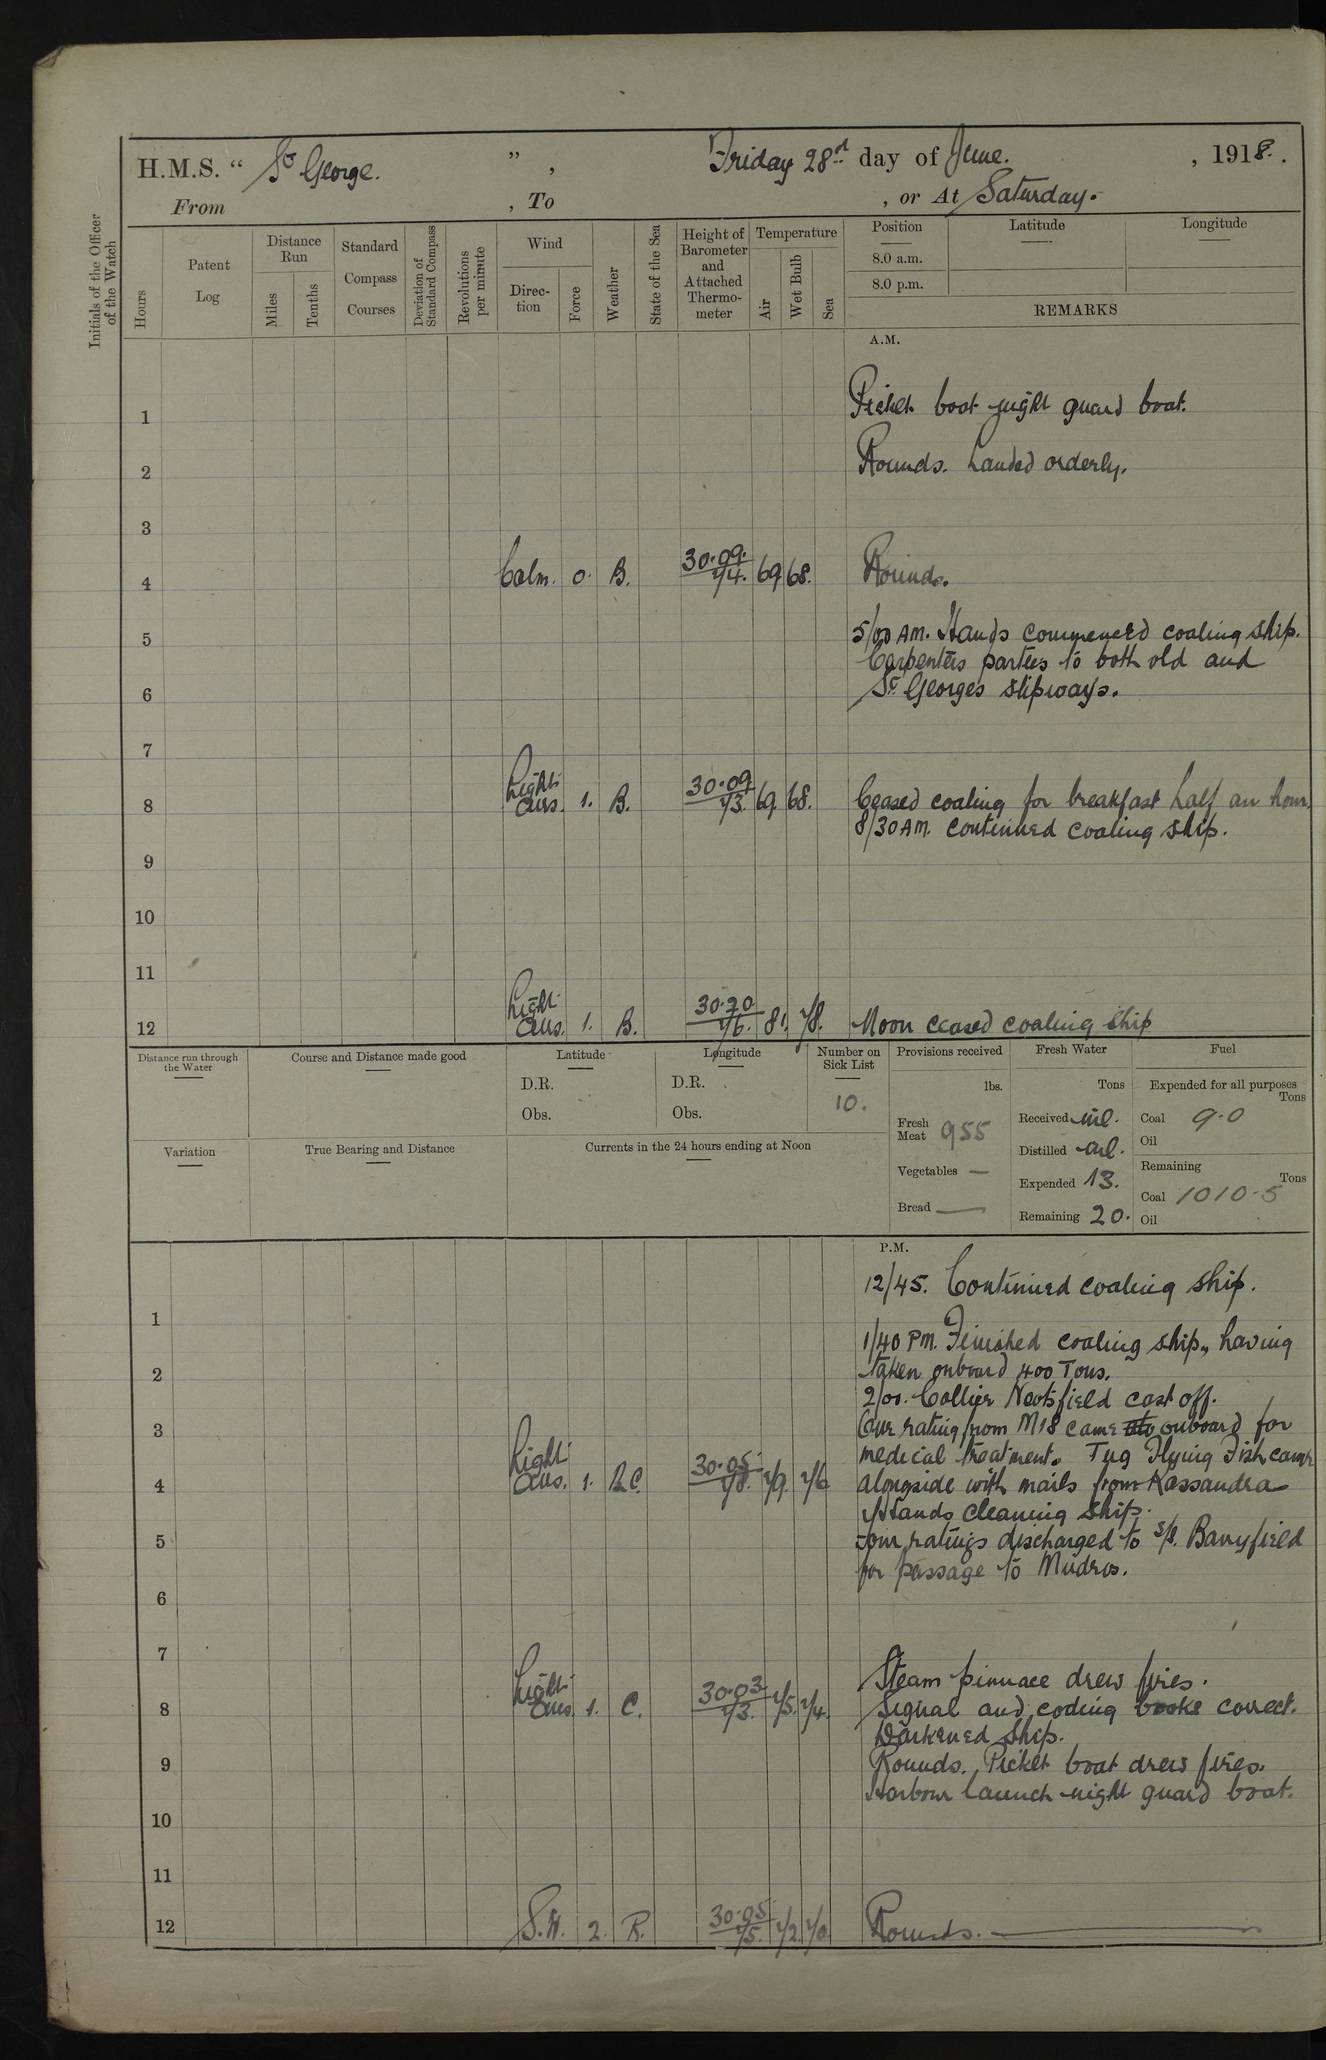 H.M.S. “ St George. ” , Friday 28th day of June. , 1918.
From , To , or At Saturday.
Initials of the Officer of the Watch
Hours
Patent Log
Distance Run
Miles
Tenths
Standard Compass Courses
Deviation of Standard Compass
Revolutions per minute
Wind
Direction
Force
Weather
State of the Sea
Height of Barometer and Attached Thermometer
Temperature
Air
Wet Bulb
Sea
Position
8.0 a.m.
8.0 p.m.
Latitude
Longitude
REMARKS
A.M.
1 Picket boat night guard boat.
2 Rounds. Landed orderly.
3
4 Calm. 0. B. 30.09. 74. 69 68. Rounds.
5 5/00 AM. Hands commenced coaling ship.
Carpenters parties to both old and
6 St Georges slipways.
7
8 Light airs. 1. B. 30.09 73. 69. 68. Ceased coaling for breakfast half an hour.
8/30 AM. continued coaling ship.
9
10
11
12 Light airs. 1. B. 30.20. 76. 81. 78. Noon ceased coaling ship
Distance run through the Water
Course and Distance made good
Latitude
D.R.
Obs.
Longitude
D.R.
Obs.
Number on Sick List
10.
Variation
True Bearing and Distance
Currents in the 24 hours ending at Noon
Provisions received
lbs.
Fresh Meat 955
Vegetables —
Bread —
Fresh Water
Tons
Received nil.
Distilled nil.
Expended 13.
Remaining 20.
Fuel
Expended for all purposes
Tons
Coal 9.0
Oil
Remaining
Tons
Coal 1010.5
Oil
P.M.
12/45. Continued coaling ship.
1
1/40 PM. Finished coaling ship, having
2 taken onboard 400 Tons.
2/00. Collier Neotsfield cast off.
3 One rating from M18 came onboard for
medical treatment. Tug Flying Fish came
4 Light airs. 1. B.C. 30.05. 78. 79. 76 alongside with mails from Kassandra
Hands cleaning ship.
5 Four ratings discharged to S/S. Barryfield
for passage to Mudros.
6
7
Steam pinnace drew fires.
8 Light airs 1. C. 30.03 73. 75. 74. Signal and coding books correct.
Darkened ship.
9 Rounds. Picket boat drew fires.
Harbour launch night guard boat.
10
11
12 S.W. 2. R. 30.05 75. 72. 70. Rounds.